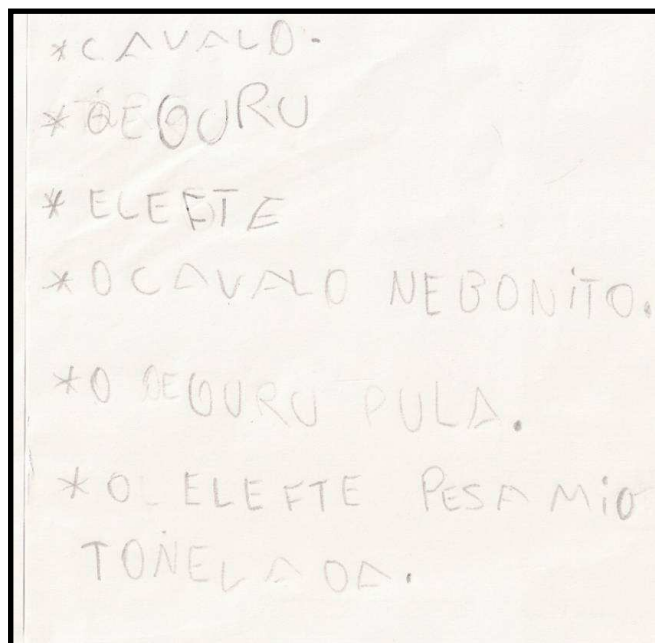 *CAVALO-
*QEGURU
*ELEFTE
*O CAVALO NEBONiTO.
*O QEGURU PULA.
*O ELEFTE PESA MiO
TONELADA.